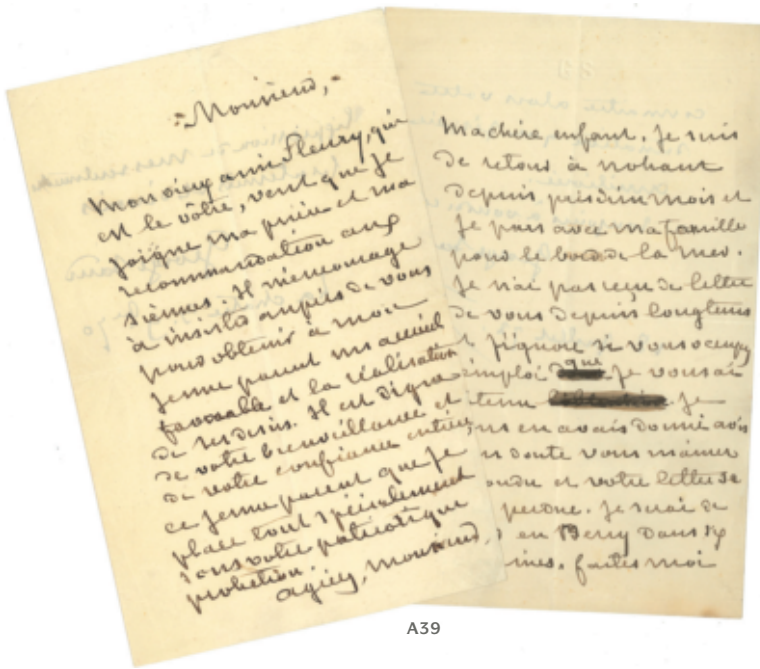 Monsieur,
Monsieur ami Fleury, qui
est le vôtre, veut que je
joigne ma prière et ma
recommandation aux
siennes. Il m'encourage
à insister auprès de vous
pour obtenir à mon
jeune parent un accueil
favorable et la réalisation
de ses desirs. Il est digne
de votre bienveillance et
de votre confiance entière,
ce jeune parent que je
place tout spécialement
sous votre patriotique
protection.
agréez, monsieur,
Ma chère enfant. Je suis
de retour à nohant
depuis près d'un mois et
je pars avec ma famille
pour le bord de la mer.
Je n'ai pas reçu de lettre
de vous depuis longtems
j'ignore si vous occupez
emploi que je vous ai
tenu je
en avais donné avis
doute vous m'avez
et votre lettre se
perdue. Je serai de
en Berry dans six
faites moi
A39